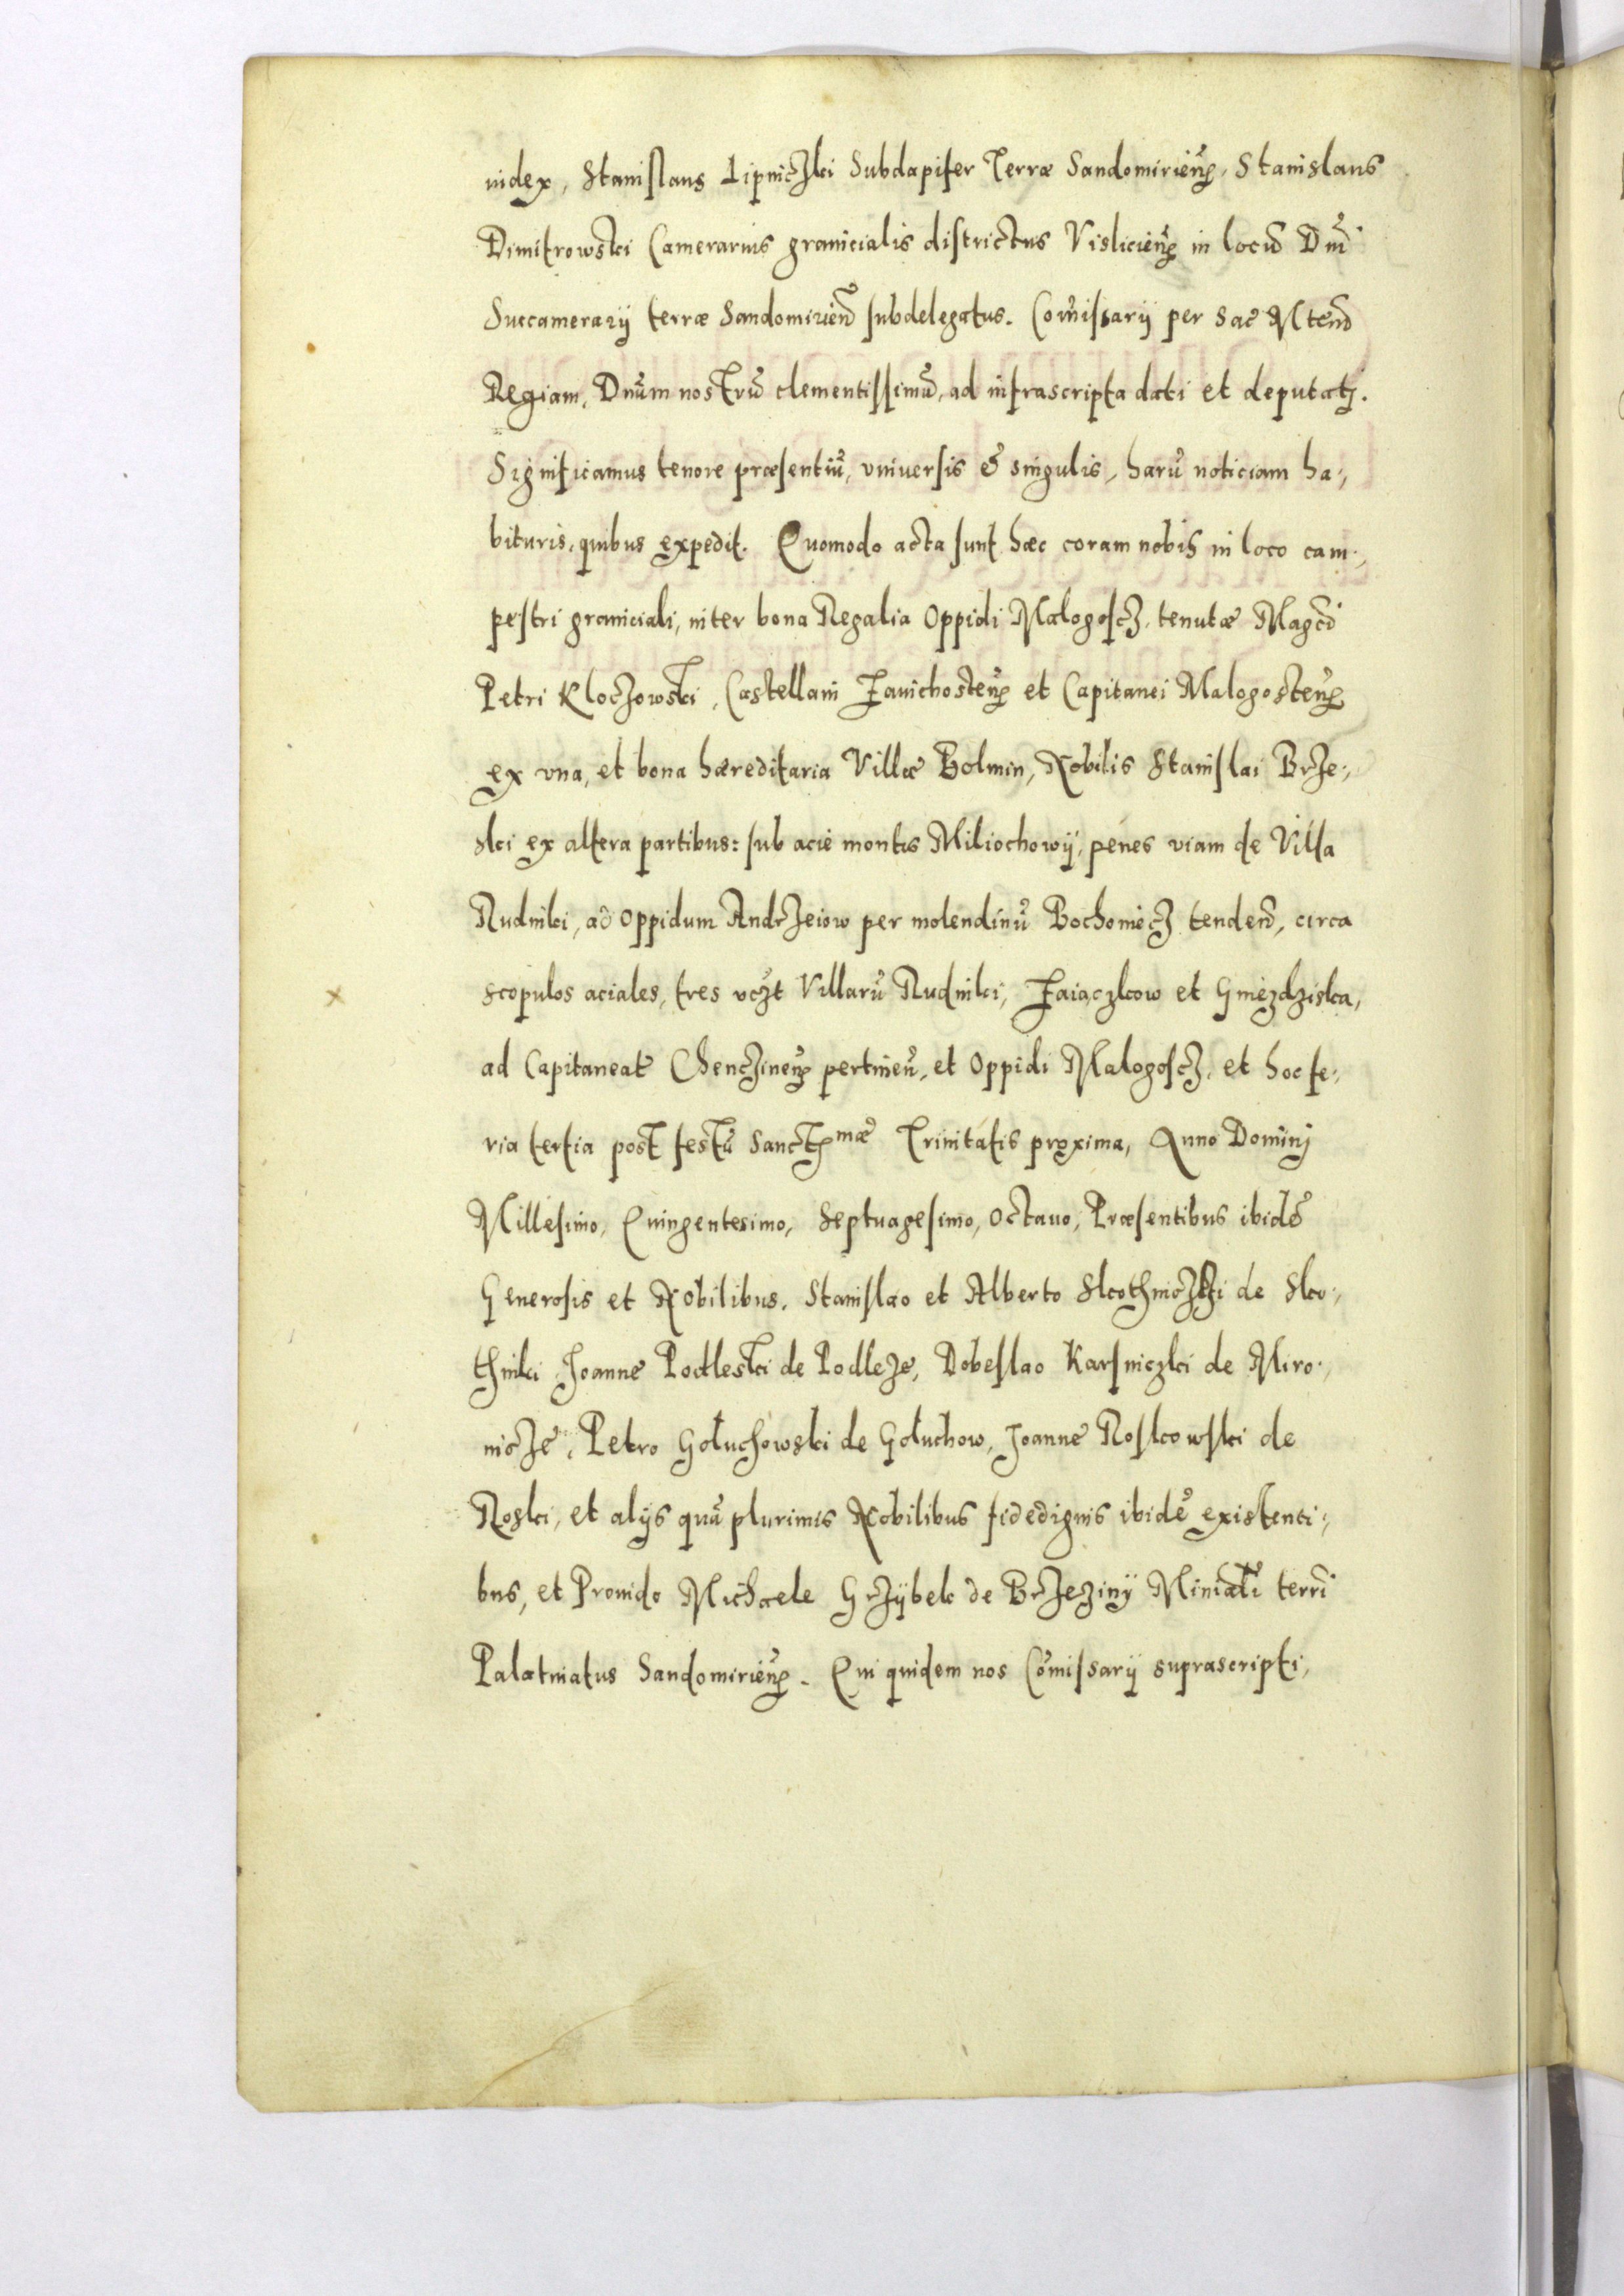 iudex, Stanislaus Lipniczki Subdapifer Terræ Sandomirieñ, Stanislaus
Dimitrowski Camerarius granicialis districtus Vislicieñ in locũ Dñi
Succamerarij terræ Sandomirieñ subdelegatus. Com̃issarij per Sac̃ Mtem̃
Regiam, Dñum nostrũ clementissimũ, ad infrascripta dati et deputati.
Significamus tenore præsentiũ, vniuersis & singulis, harũ noticiam ha-,
bituris, quibus expedit. Quomodo acta sunt hæc coram nobis in loco cam-,
pestri graniciali, inter bona Regalia Oppidi Malogoscz, tenutæ Magcĩ
Petri Kloczowski, Castellani Zauichosteñ et Capitanei Malogosteñ
ex vna, et bona hæreditaria Villæ Bolmin, Nobilis Stanislai Brze-,
ski ex altera partibus: sub acie montis Miliochowij, penes viam de Villa
Rudniki, ad Oppidum Andrzeiow per molendinũ Bochoniecz tendeñ, circa
scopulos aciales, tres vczt Villarũ Rudniki, Zaiączkow et Gniezdziska,
ad Capitaneat̃ Chenczineñ pertineñ, et Oppidi Malogoscz, et hoc fe-,
ria tertia post festũ Sanctissmæ Trinitatis proxima, Anno Dominj
Millesimo, Quingentesimo, Septuagesimo, Octauo, Præsentibus ibidẽ
Generosis et Nobilibus. Stanislao et Alberto Skothniczki de Sko-,
thniki Joanne Podleski de Podleze, Dobeslao Karsniczki de Miro-,
nicze, Petro Gołuchowski de Gołuchow, Joanne Roskowski de
Roski, et alijs quã plurimis Nobilibus fidedignis ibidẽ existenti-,
bus, et Prouido Michaele Grzÿbek de Brzezinÿ Miniali terrĩ
Palatinatus Sandomirieñ. Qui quidem nos Com̃issarij suprascripti,